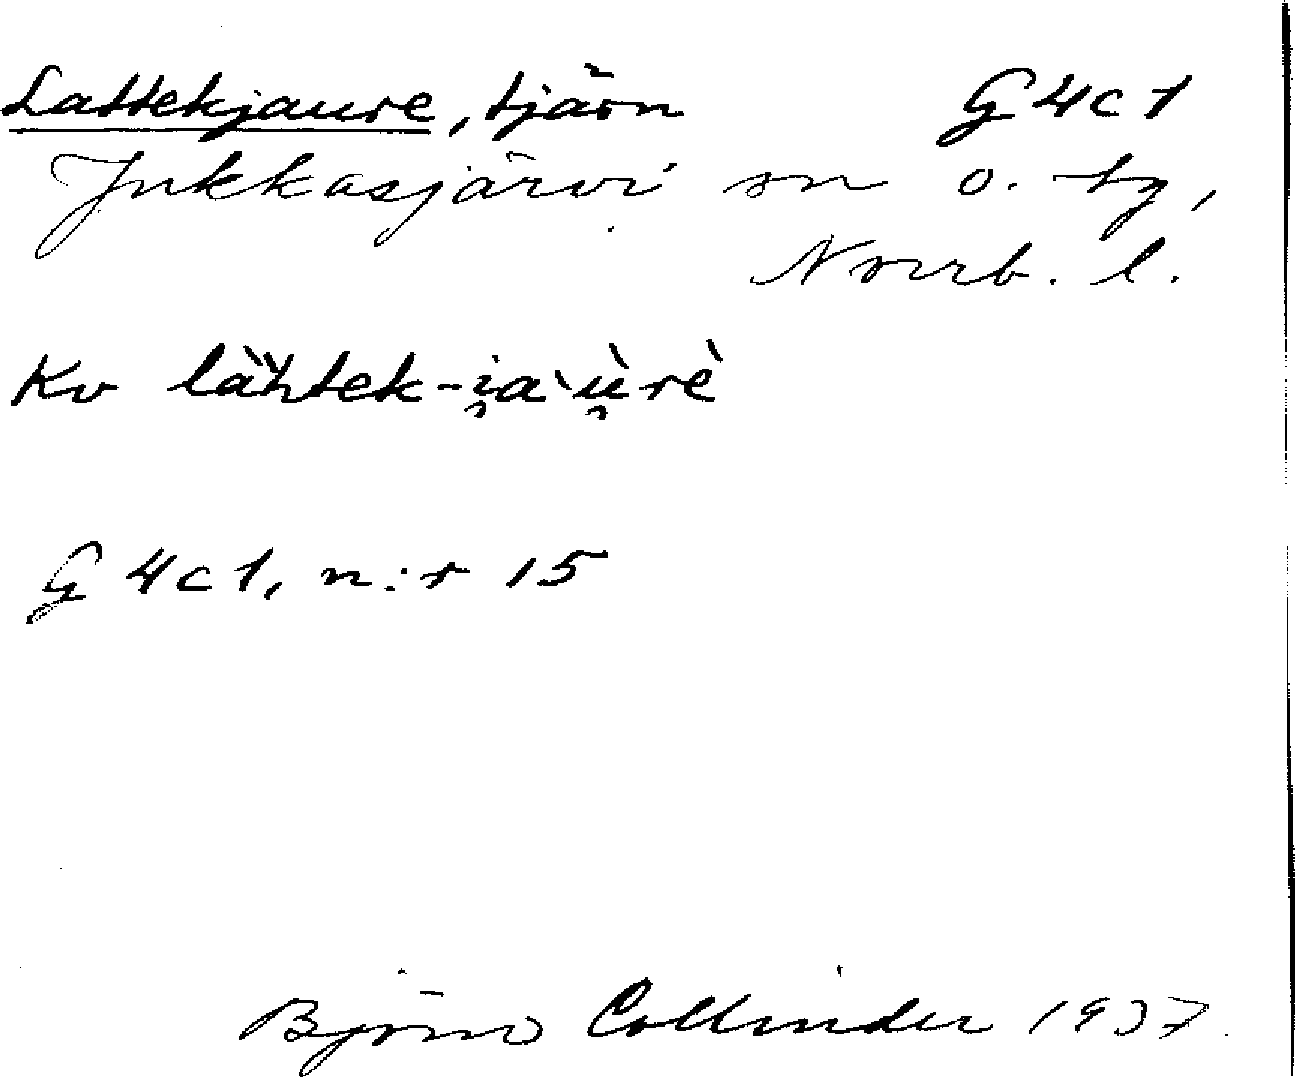 Lattekjaure, tjärn G4c1
Jukkasjärvi sn o. tg,
Norrb. l.
Kv làh̀tek-i̯a`ù̯rè
G4c1, n:r 15
Björn Collinder 1937.